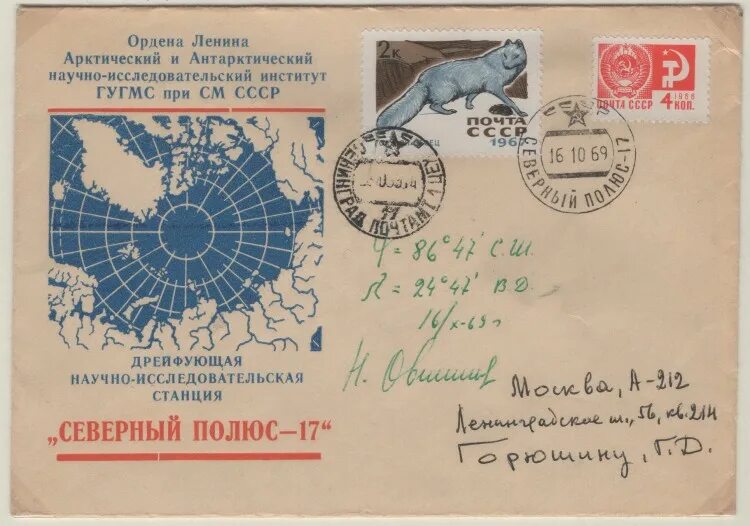 Ордена Ленина
Арктический и Антарктический
научно-исследовательский институт
ГУГМС при СМ СССР
ДРЕЙФУЮЩАЯ
НАУЧНО-ИССЛЕДОВАТЕЛЬСКАЯ
СТАНЦИЯ
„СЕВЕРНЫЙ ПОЛЮС—17“
2К
ПОЧТА
СССР
196
ПОЧТА СССР
1966
4 КОП.
ЛЕНИНГРАД ПОЧТАМТ
16 10 69
СЕВЕРНЫЙ ПОЛЮС-17
φ = 86°47' С.Ш.
λ = 24°47' В.Д.
16/X-69г
Н.
Москва, А-212
Ленинградское ш., 56, кв. 214
Горюшину, Г.Д.